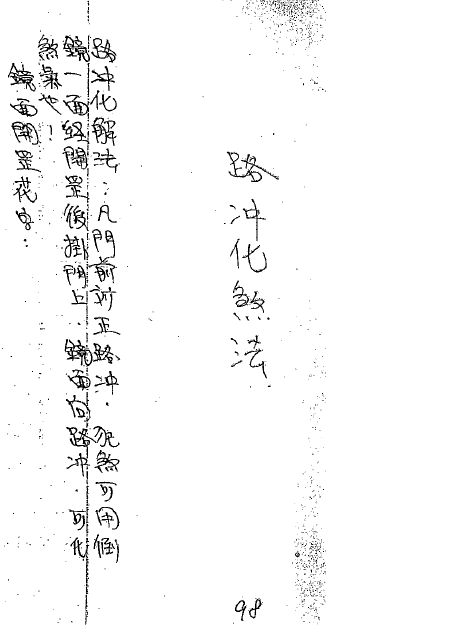 路冲化煞法
路冲化解法：凡門前対正路冲．犯煞可用倒
鏡一面経開罡後掛門上．鏡面向路冲．可化
煞氣也！
鏡面開罡花字：
98